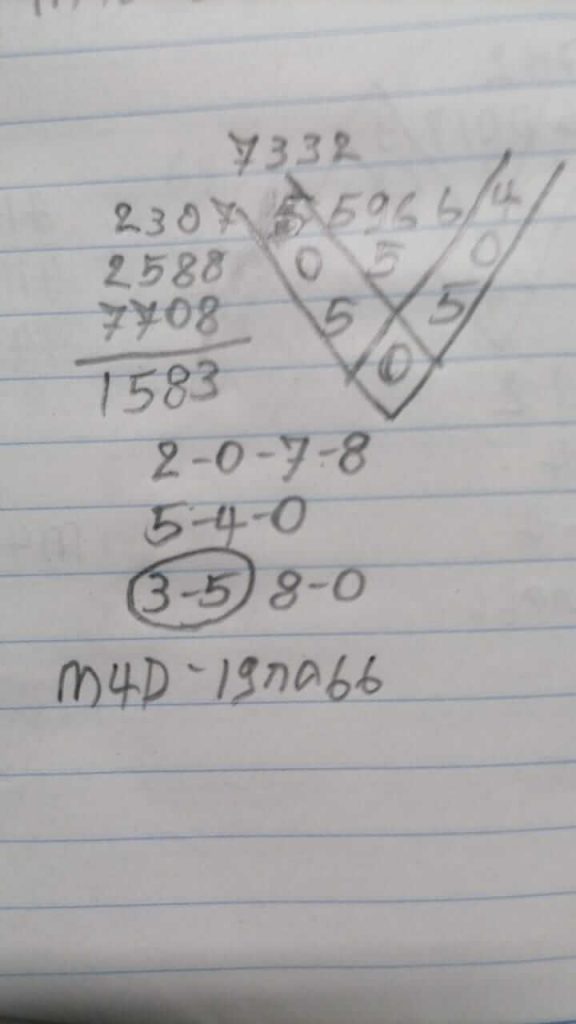 7332
2307 5 5966 4
2588 0 5 0
7708 5 5
1583 0
2-0-7-8
5-4-0
3-5 8-0
M4D-19na66